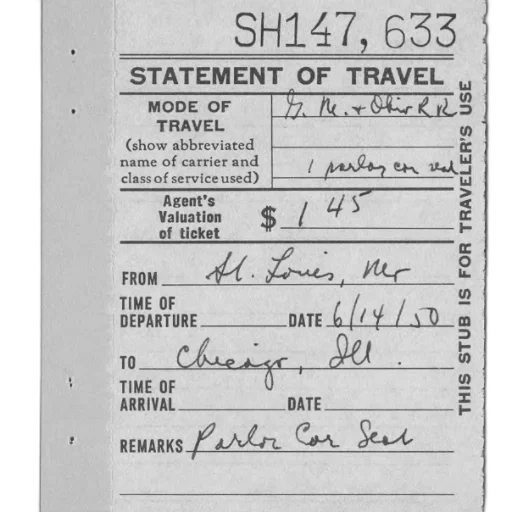 SH147,633
STATEMENT OF TRAVEL
MODE OF
TRAVEL
(show abbreviated
name of carrier and
class of service used)
G. M. + Ohio RR
1 parlor car seat
Agent's
Valuation
of ticket
$ 1 45
FROM St. Louis, Mo
TIME OF
DEPARTURE DATE 6/14/50
TO Chicago, Ill.
TIME OF
ARRIVAL DATE
REMARKS Parlor Car Seat
THIS STUB IS FOR TRAVELER'S USE